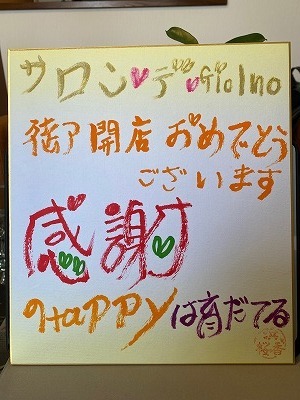 サロン・デ・Giolno
御開店おめでとう
ございます
感謝
Happyは育だてる